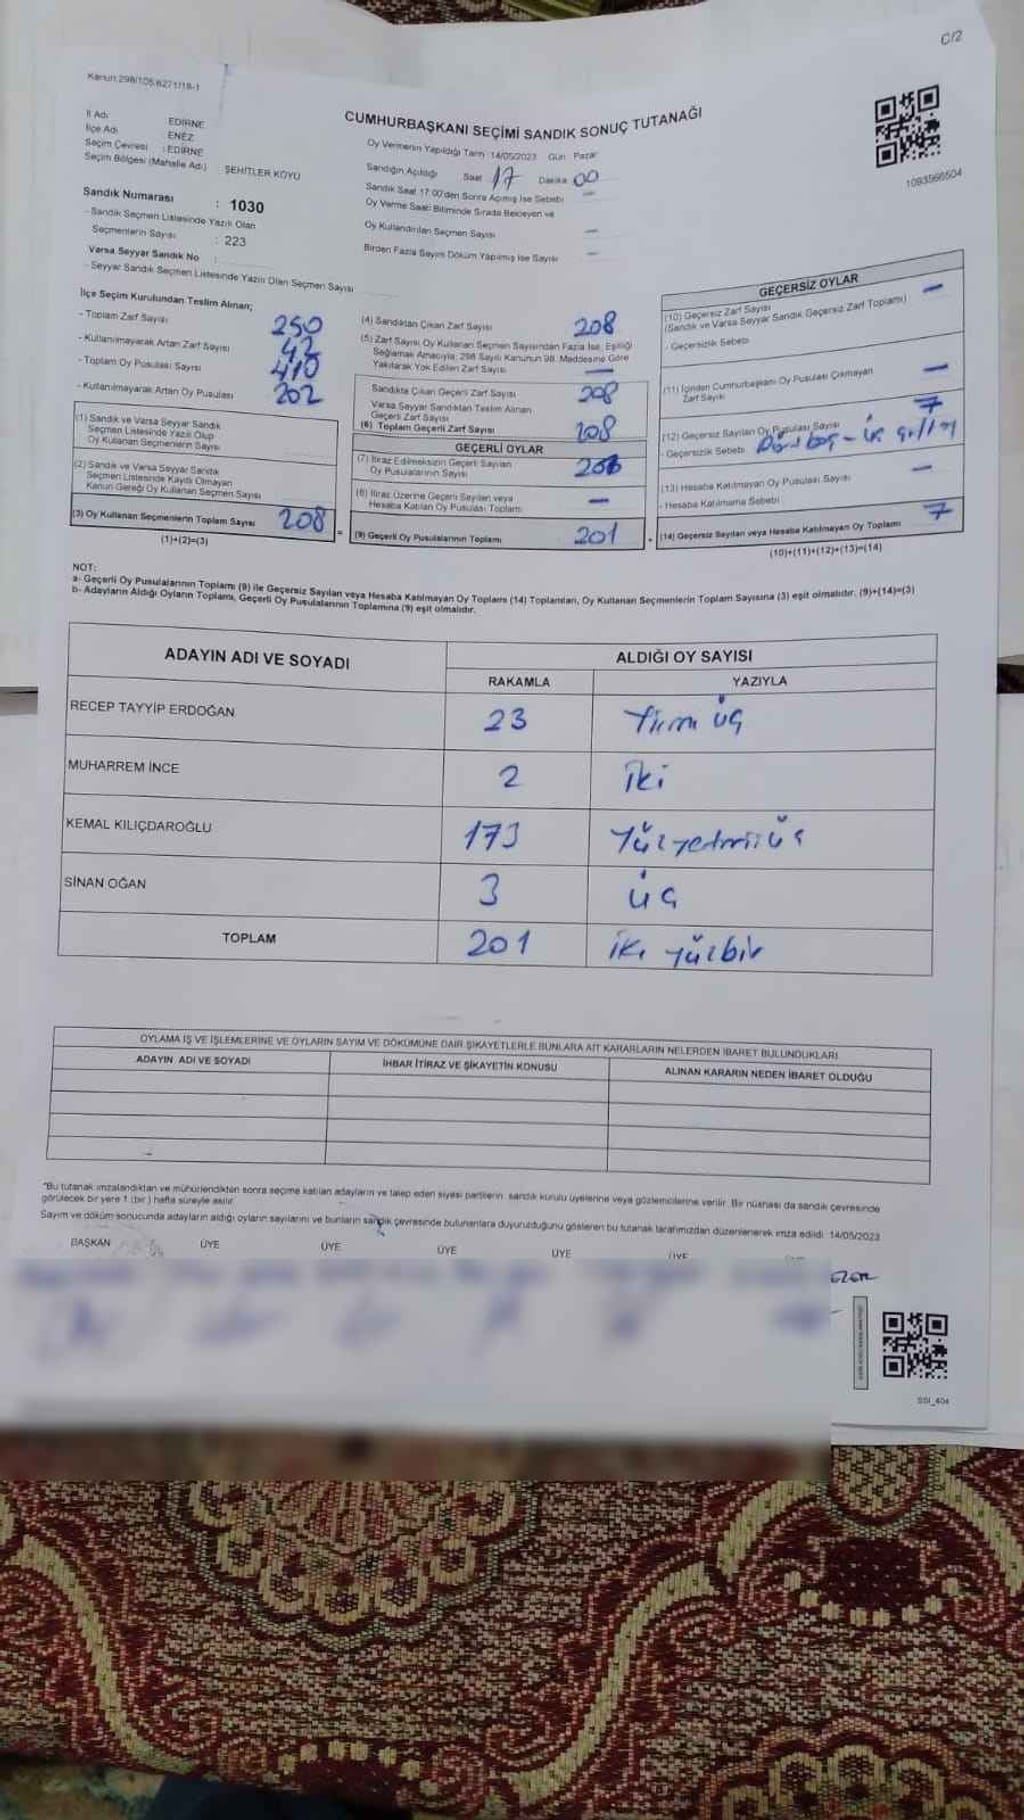 C/2
Kanun:298/105/6271/18-1
CUMHURBAŞKANI SEÇİMİ SANDIK SONUÇ TUTANAĞI
1093566504
İl Adı EDİRNE
İlçe Adı ENEZ
Seçim Çevresi : EDİRNE
Seçim Bölgesi (Mahalle Adı) ŞEHİTLER KÖYÜ
Sandık Numarası : 1030
- Sandık Seçmen Listesinde Yazılı Olan
Seçmenlerin Sayısı : 223
Varsa Seyyar Sandık No :
- Seyyar Sandık Seçmen Listesinde Yazılı Olan Seçmen Sayısı
Oy Vermenin Yapıldığı Tarih :14/05/2023 Gün : Pazar
Sandığın Açıldığı Saat 17 Dakika 00
Sandık Saat 17:00'den Sonra Açılmış İse Sebebi —
Oy Verme Saati Bitiminde Sırada Bekleyen ve
Oy Kullandırılan Seçmen Sayısı —
Birden Fazla Sayım Döküm Yapılmış İse Sayısı —
İlçe Seçim Kurulundan Teslim Alınan;
- Toplam Zarf Sayısı 250
- Kullanılmayarak Artan Zarf Sayısı 42
- Toplam Oy Pusulası Sayısı 410
- Kullanılmayarak Artan Oy Pusulası 202
(1) Sandık ve Varsa Seyyar Sandık
Seçmen Listesinde Yazılı Olup
Oy Kullanan Seçmenlerin Sayısı
(2) Sandık ve Varsa Seyyar Sandık
Seçmen Listesinde Kayıtlı Olmayan
Kanun Gereği Oy Kullanan Seçmen Sayısı
(3) Oy Kullanan Seçmenlerin Toplam Sayısı 208
(1)+(2)=(3)
(4) Sandıktan Çıkan Zarf Sayısı 208
(5) Zarf Sayısı Oy Kullanan Seçmen Sayısından Fazla İse, Eşitliği
Sağlamak Amacıyla; 298 Sayılı Kanunun 98. Maddesine Göre
Yakılarak Yok Edilen Zarf Sayısı —
Sandıkta Çıkan Geçerli Zarf Sayısı 208
Varsa Seyyar Sandıktan Teslim Alınan
Geçerli Zarf Sayısı
(6) Toplam Geçerli Zarf Sayısı 208
GEÇERLİ OYLAR
(7) İtiraz Edilmeksizin Geçerli Sayılan
Oy Pusulalarının Sayısı
(8) İtiraz Üzerine Geçerli Sayılan veya
Hesaba Katılan Oy Pusulası Toplamı —
(9) Geçerli Oy Pusulalarının Toplamı 201
GEÇERSİZ OYLAR
(10) Geçersiz Zarf Sayısı —
(Sandık ve Varsa Seyyar Sandık Geçersiz Zarf Toplamı)
- Geçersizlik Sebebi
(11) İçinden Cumhurbaşkanı Oy Pusulası Çıkmayan
Zarf Sayısı —
(12) Geçersiz Sayılan Oy Pusulası Sayısı 7
- Geçersizlik Sebebi
(13) Hesaba Katılmayan Oy Pusulası Sayısı —
- Hesaba Katılmama Sebebi
(14) Geçersiz Sayılan veya Hesaba Katılmayan Oy Toplamı 7
(10)+(11)+(12)+(13)=(14)
NOT:
a- Geçerli Oy Pusulalarının Toplamı (9) ile Geçersiz Sayılan veya Hesaba Katılmayan Oy Toplamı (14) Toplamları, Oy Kullanan Seçmenlerin Toplam Sayısına (3) eşit olmalıdır. (9)+(14)=(3)
b- Adayların Aldığı Oyların Toplamı, Geçerli Oy Pusulalarının Toplamına (9) eşit olmalıdır.
ADAYIN ADI VE SOYADI ALDIĞI OY SAYISI
RAKAMLA YAZIYLA
RECEP TAYYİP ERDOĞAN 23 Yirmi üç
MUHARREM İNCE 2 iki
KEMAL KILIÇDAROĞLU 173 Yüzyetmişüç
SİNAN OĞAN 3 üç
TOPLAM 201 iki yüzbir
OYLAMA İŞ VE İŞLEMLERİNE VE OYLARIN SAYIM VE DÖKÜMÜNE DAİR ŞİKAYETLERLE BUNLARA AİT KARARLARIN NELERDEN İBARET BULUNDUKLARI
ADAYIN ADI VE SOYADI İHBAR İTİRAZ VE ŞİKAYETİN KONUSU ALINAN KARARIN NEDEN İBARET OLDUĞU
*Bu tutanak imzalandıktan ve mühürlendikten sonra seçime katılan adayların ve talep eden siyasi partilerin sandık kurulu üyelerine veya gözlemcilerine verilir. Bir nüshası da sandık çevresinde
görülecek bir yere 1 (bir) hafta süreyle asılır.
Sayım ve döküm sonucunda adayların aldığı oyların sayılarını ve bunların sandık çevresinde bulunanlara duyurulduğunu gösteren bu tutanak tarafımızdan düzenlenerek imza edildi. 14/05/2023
BAŞKAN ÜYE ÜYE ÜYE ÜYE ÜYE
SSI_404